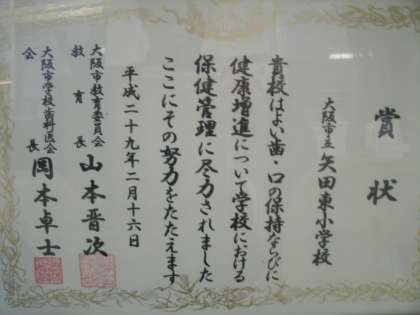 賞状
大阪市立 矢田東小学校
貴校はよい歯・口の保持ならびに
健康増進について学校における
保健管理に尽力されました
ここにその努力をたたえます
平成二十九年二月十六日
大阪市教育委員会
教育長 山本晋次
大阪市学校歯科医会
会長 岡本卓士